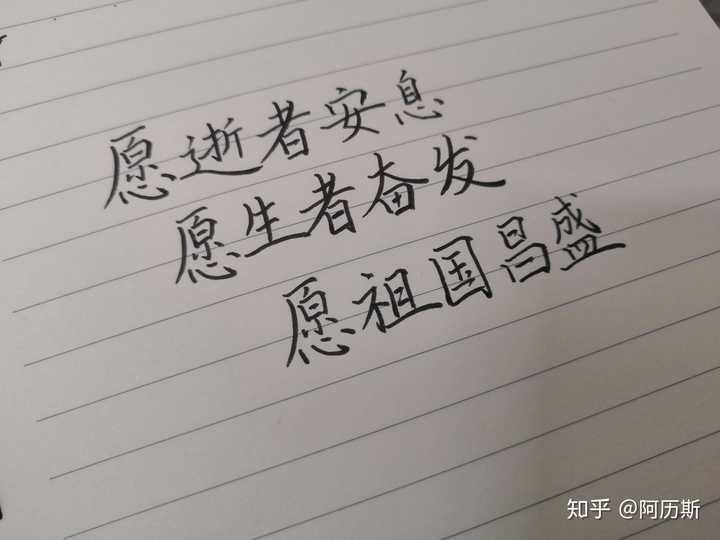 愿逝者安息
愿生者奋发
愿祖国昌盛
知乎 @阿历斯